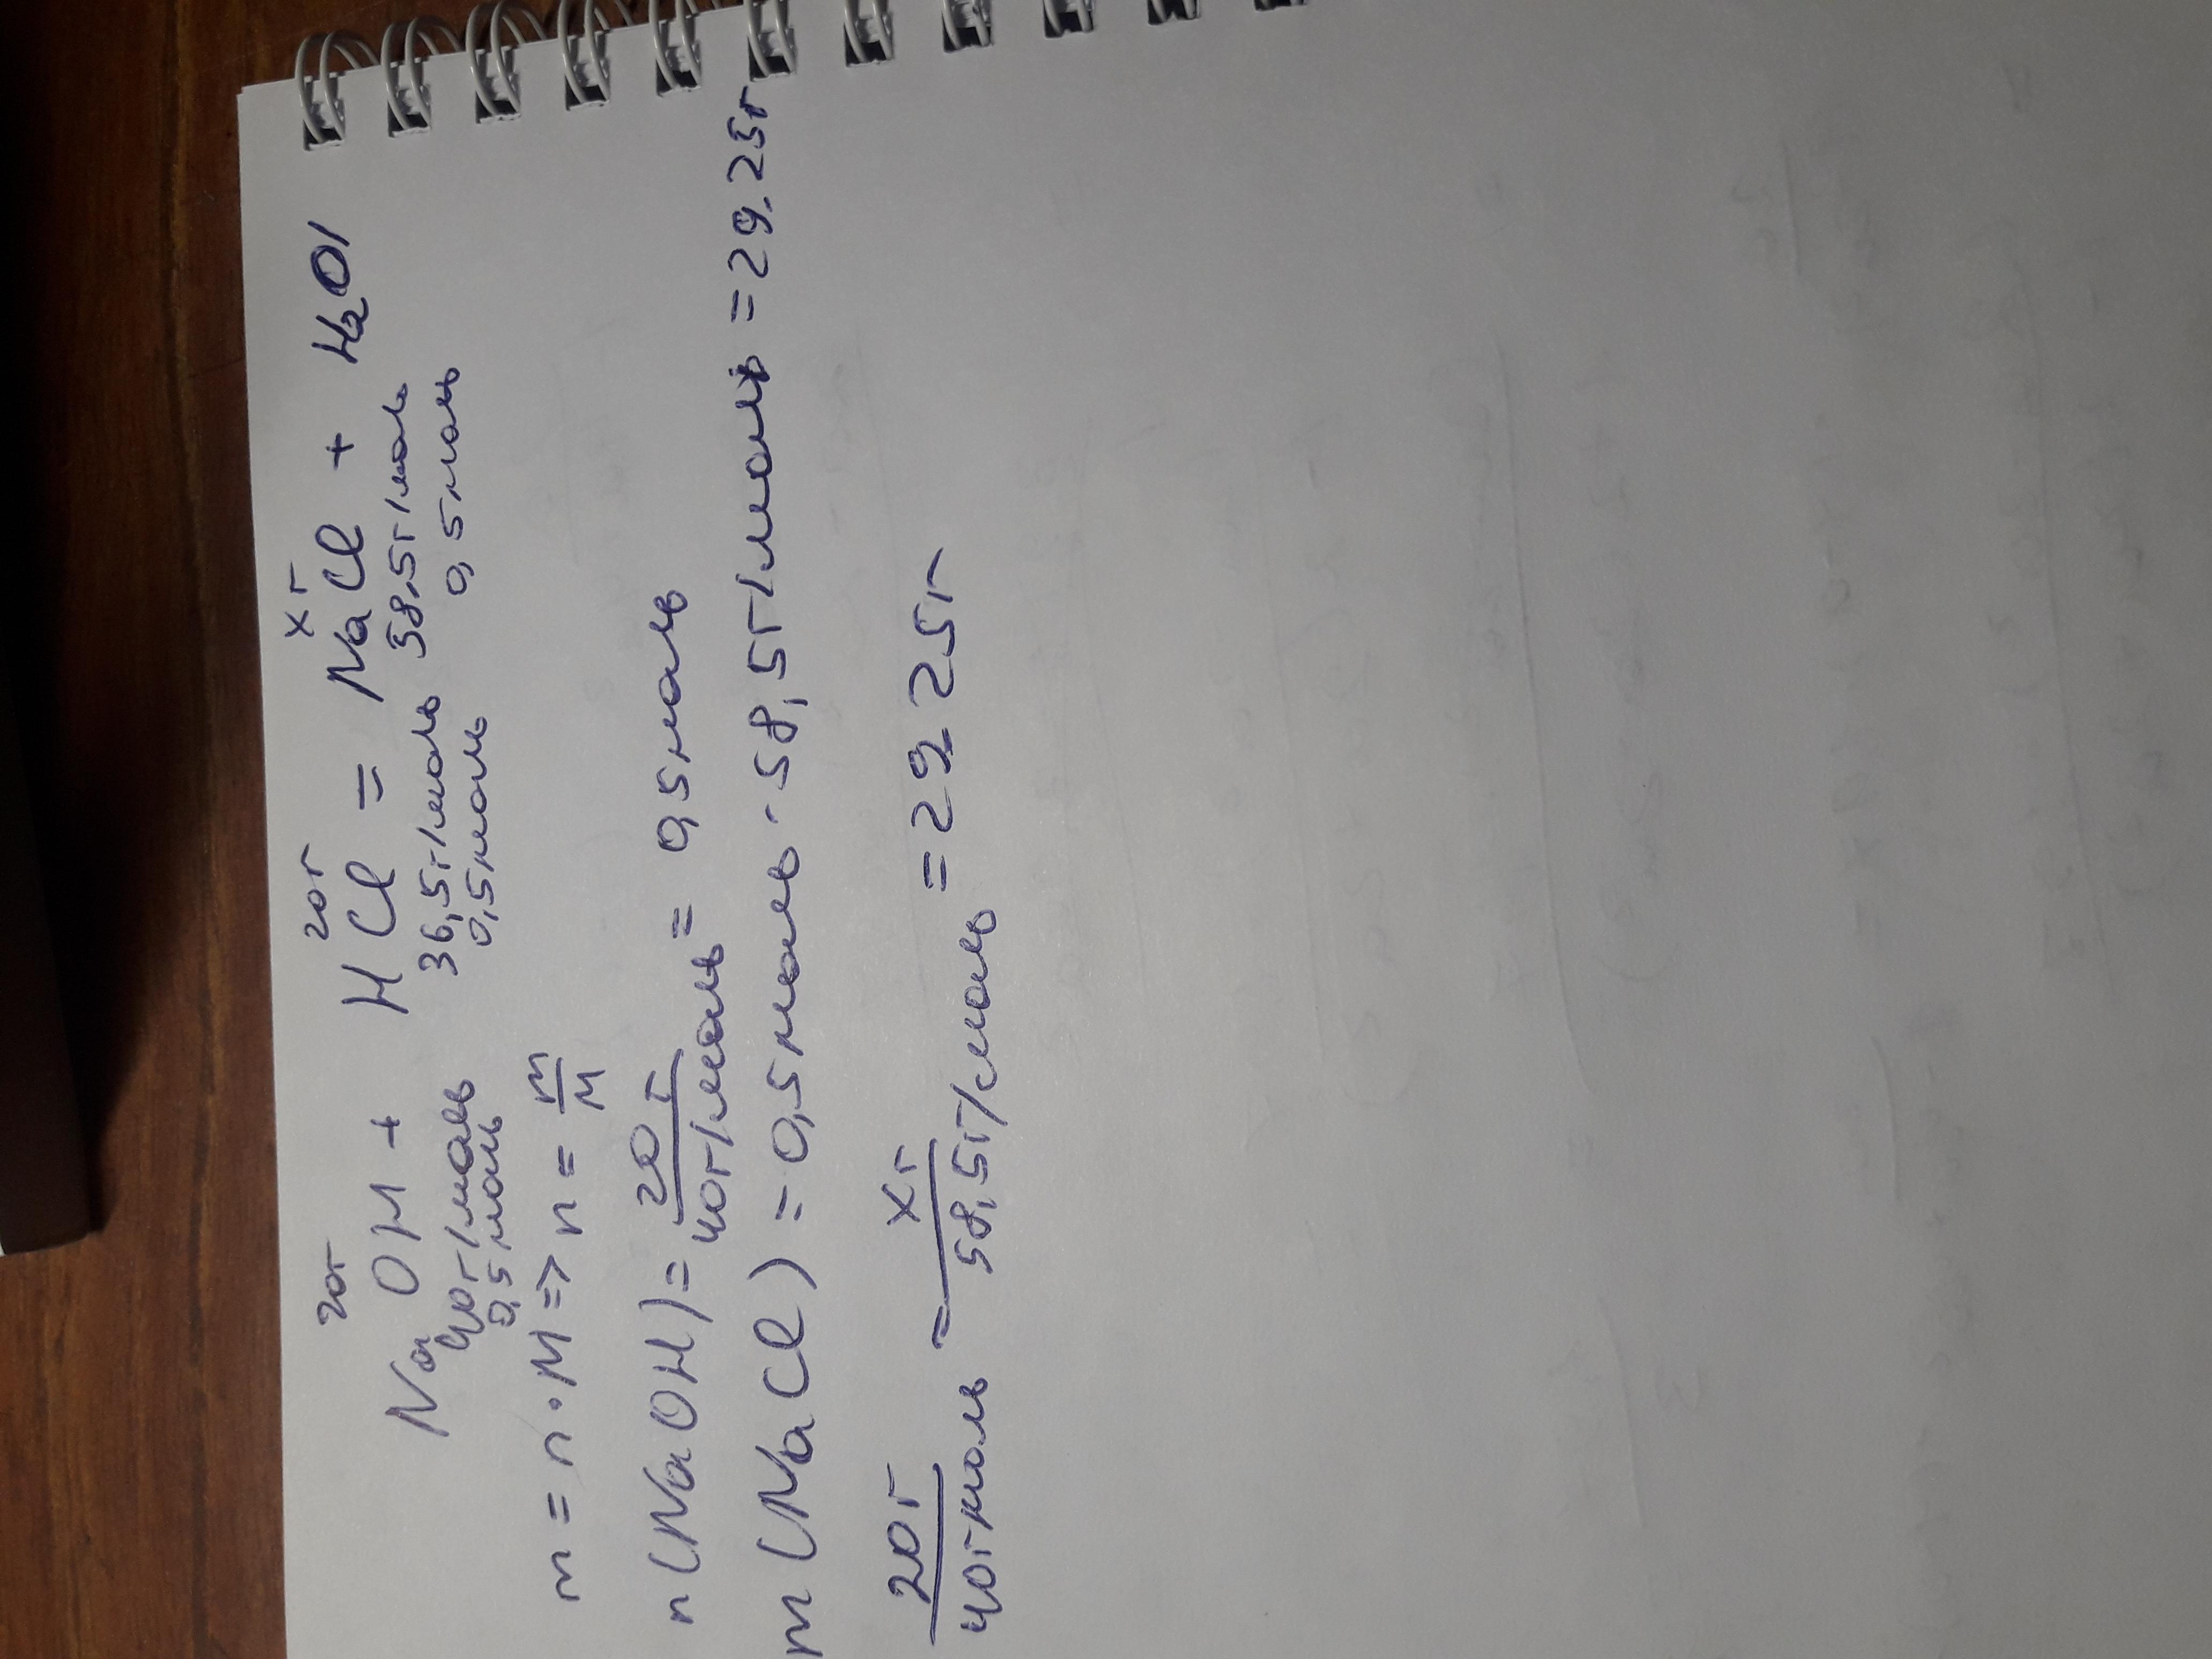 20г 20г xг
NaOH + HCl = NaCl + H2O
40г/моль 36,5г/моль 58,5г/моль
0,5моль 0,5моль 0,5моль
m = n · M => n = m/M
n(NaOH) = 20г/40г/моль = 0,5моль
m(NaCl) = 0,5моль · 58,5г/моль = 29,25г
20г/40гмоль = xг/58,5г/моль = 29,25г